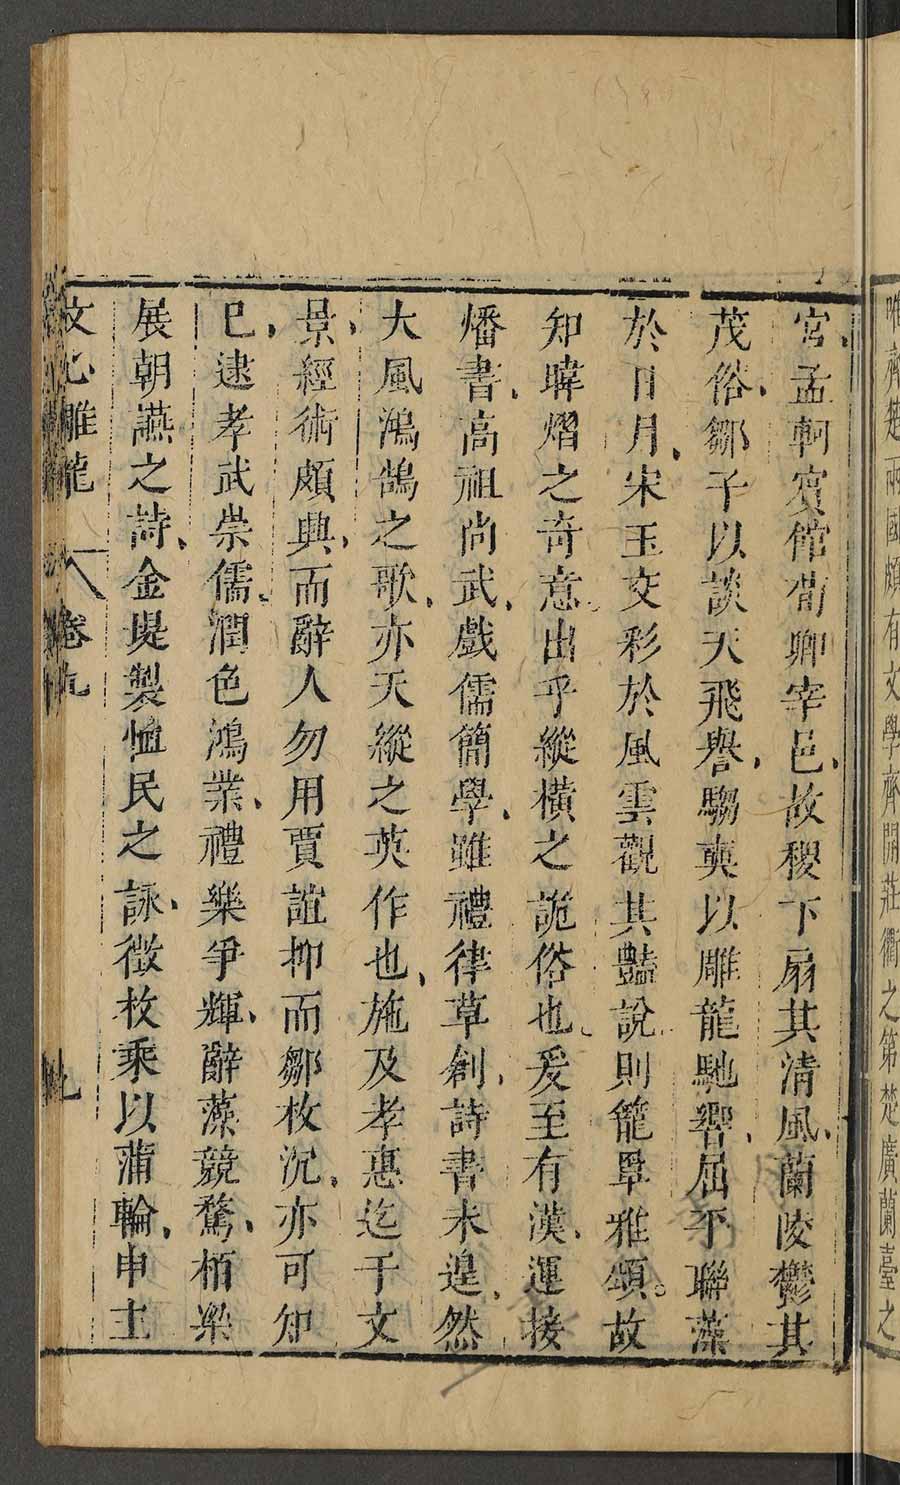 唯齊楚兩國頗有文學齊開莊衢之第楚廣蘭臺之
宮孟軻賓館荀卿宰邑故稷下扇其清風蘭陵鬱其
茂俗鄒子以談天飛譽騶奭以雕龍馳響屈平聯藻
於日月宋玉交彩於風雲觀其豔說則籠罩雅頌故
知暐熠之奇意出乎縱橫之詭俗也爰至有漢運接
燔書高祖尚武戲儒簡學雖禮律草創詩書未遑然
大風鴻鵠之歌亦天縱之英作也施及孝惠迄于文
景經術頗興而辭人勿用賈誼抑而鄒枚沉亦可知
已逮孝武崇儒潤色鴻業禮樂爭輝辭藻競騖栢梁
展朝讌之詩金堤製恤民之詠徵枚乘以蒲輪申主
文心雕龍 卷九 九